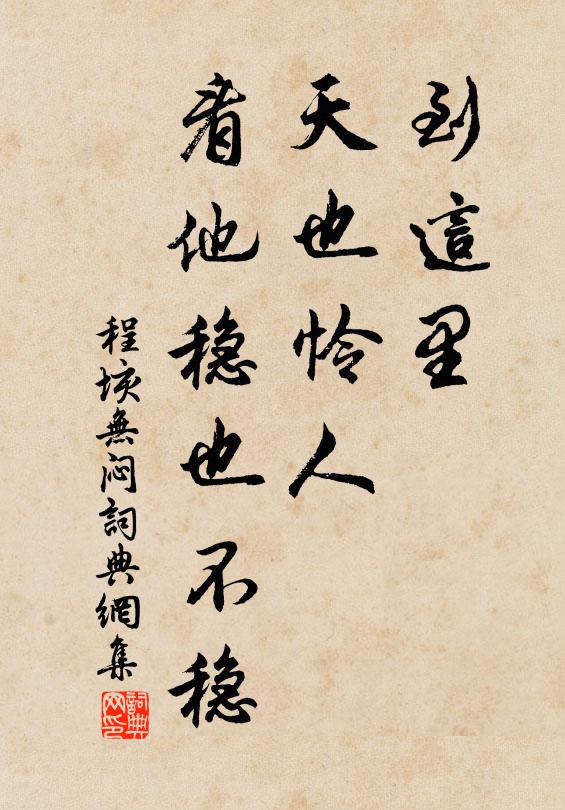 到這里
天也怜人
看他稳也不稳
程垓無闷詞典網集
詞典网印